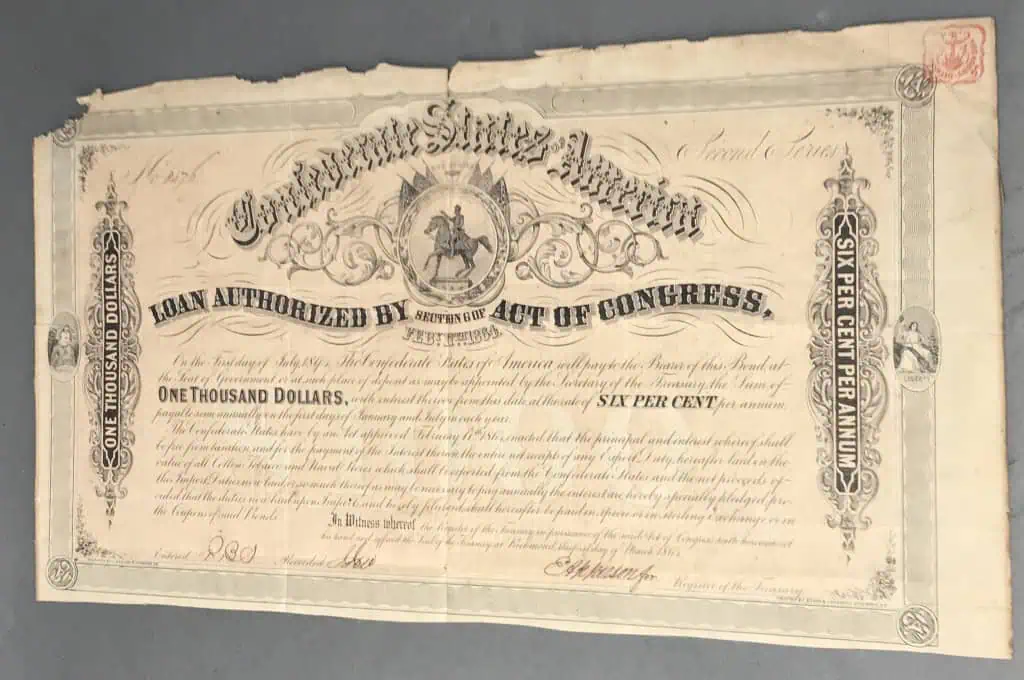 Second Series
Confederate States of America
LOAN AUTHORIZED BY SECTION 6 OF ACT OF CONGRESS,
FEBY. 17TH. 1864.
ONE THOUSAND DOLLARS
SIX PER CENT PER ANNUM
LIBERTY
On the First day of July, The Confederate States of America, will pay to the Bearer of this Bond, at
the Seat of Government or at such place of deposit as may be appointed by the Secretary of the Treasury, the Sum of
ONE THOUSAND DOLLARS, with interest thereon from this date, at the rate of SIX PER CENT per annum
payable semi annually on the first days of January and July in each year.
The Confederate States have by an Act approved February 17th enacted that the principal and interest whereof shall
be free from taxation, and for the payment of the Interest thereon, the entire net receipts of any Export Duty, hereafter laid on the
value of all Cotton, Tobacco and Naval Stores which shall be exported from the Confederate States and the net proceeds of
the Import Duties now laid, or so much thereof as may be necessary to pay annually the interest are hereby specially pledged, pro-
vided that the duties now laid upon Imports, and hereby pledged, shall hereafter be paid in specie or in sterling Exchange or in
the Coupons of said Bonds
In Witness whereof the Register of the Treasury in pursuance of the said Act of Congress, hath hereunto set
his hand and affixed the Seal of the Treasury at Richmond, this day of March
Entered Recorded
Register of the Treasury